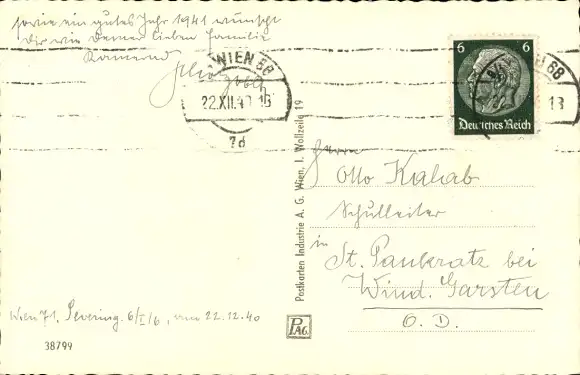 sowie ein gutes Jahr 1941 wünscht
Dir wie Deiner lieben Familie
WIEN 68
22.XII.40 13
7d
6 6
Deutsches Reich
68
13
Postkarten Industrie A. G. Wien, I. Wollzeile 19
Herrn
Otto Kahab
Schulleiter
in
St. Pankratz bei
Wind. Garsten
O. D.
Wien 71, Sievering. 6/I/6, am 22.12.40
PAG
38799